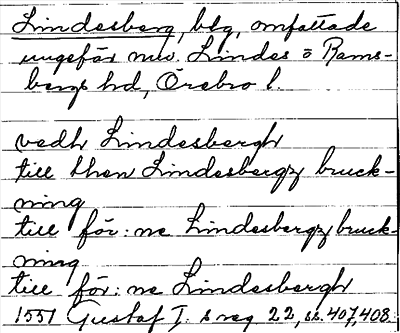 Lindesberg, blg, omfattade
ungefär nuv. Lindes o Rams-
bergs hd, Örebro l.
vedh Lindesbergh
till then Lindesbergz bruck-
ning
till för: ne Lindesbergz bruck-
ning
till för: ne Lindesbergh
1551 Gustaf I:s reg 22, ss. 407, 408.